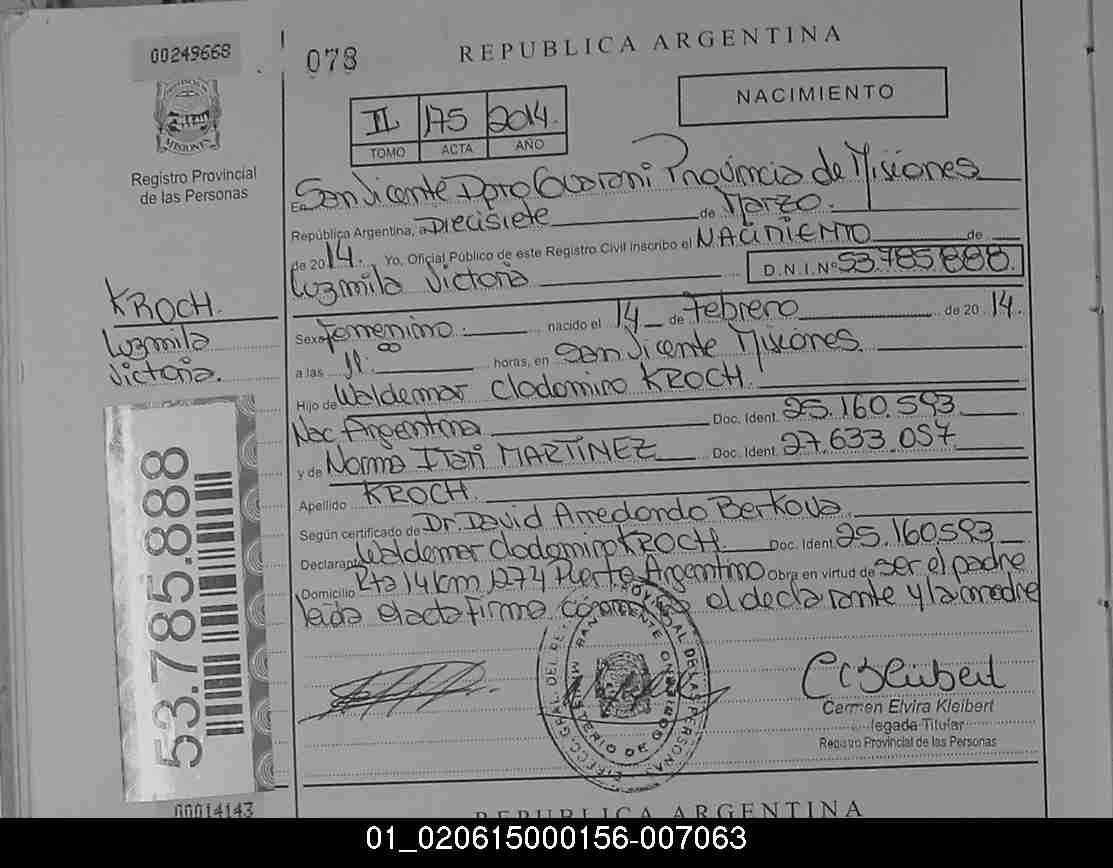 00249668
078
REPUBLICA ARGENTINA
NACIMIENTO
II 175 2014.
TOMO ACTA AÑO
MISIONES
Registro Provincial
de las Personas
En San Vicente Dpro Guarani Provincia de Misiones
República Argentina, a Diecisiete de Marzo.
de 2014. Yo, Oficial Público de este Registro Civil inscribo el NACIMIENTO de
Luzmila Victoria D.N.I. Nº 53.785.888.
KROCH.
Luzmila
Victoria.
Sexo femenino. nacido el 14 de Febrero de 2014.
a las 11:00 horas, en San Vicente Misiones.
Hijo de Waldemar Clodomiro KROCH.
Nac Argentina Doc. Ident. 25.160.593
y de Norma Itati MARTINEZ Doc. Ident. 27.633.057
Apellido KROCH.
Según certificado de Dr. David Arredondo Berkova.
Declarante Waldemar Clodomiro KROCH. Doc. Ident. 25.160593
Domicilio Rta 14 km 1274 Puerto Argentino Obra en virtud de ser el padre
leida el acta firma el declarante y la madre
53.785.888
MINISTERIO DE GOBIERNO
Carmen Elvira Kleibert
legada Titular
Registro Provincial de las Personas
00014143
REPUBLICA ARGENTINA
01_020615000156-007063